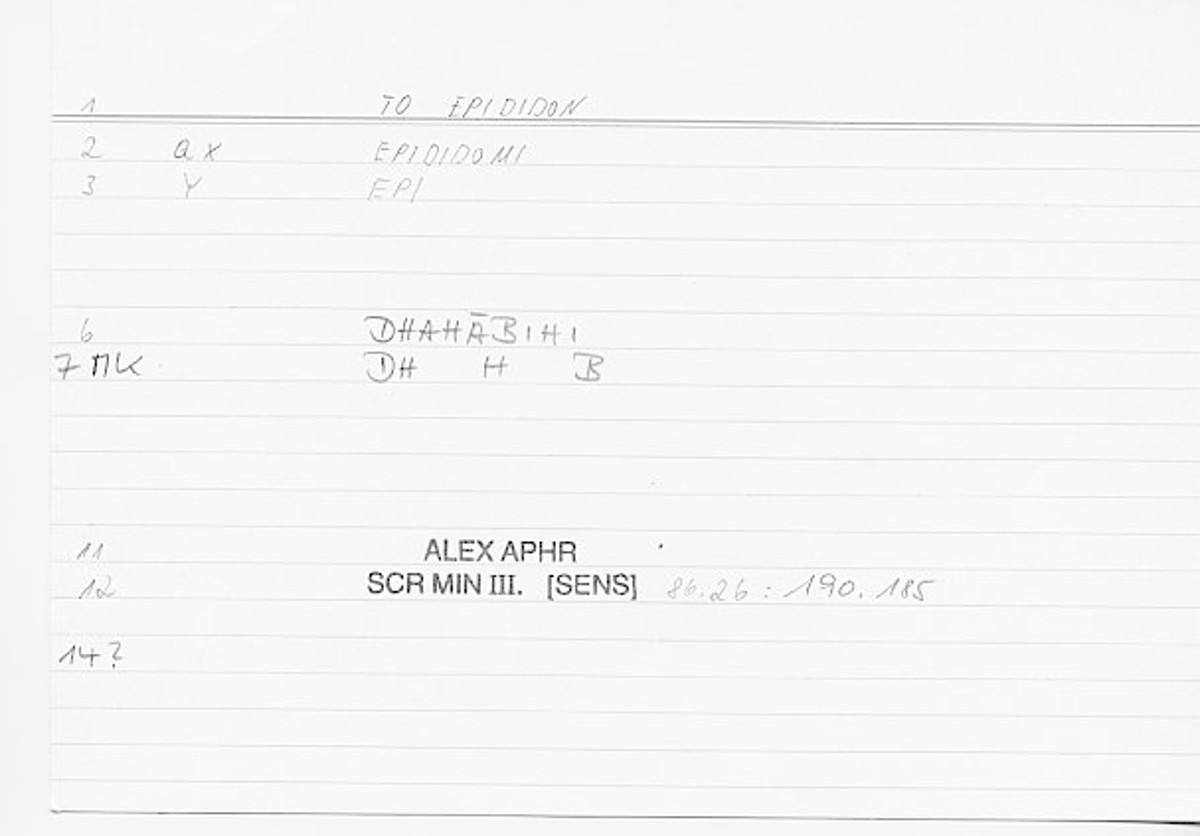 1 TO EPIDIDON
2 a x EPIDIDOMI
3 Y EPI
6 DHAHĀBIHI
7 MK DH H B
11 ALEX APHR
12 SCR MIN III. [SENS] 86.26 : 190.185
14?